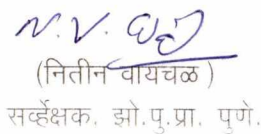 (नितीन वायचळ)
सर्व्हेक्षक. झो.पु.प्रा. पुणे.